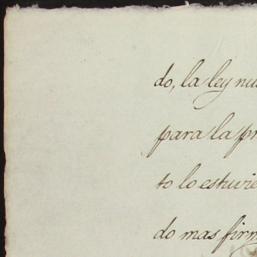 do, la ley nu
para la pr
to lo estuvie
do mas firm